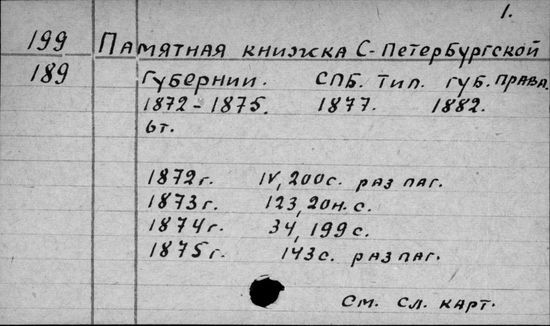 1.
199 Памятная книжка С-Петербургской
189 Губернии. СПБ. Тип. губ. права.
1872-1875. 1877. 1882.
6т.
1872г. IV, 200с. раз паг.
1873г. 123, 20н. с.
1874г. 34, 199с.
1875г. 143с. раз паг.
См. сл. карт.